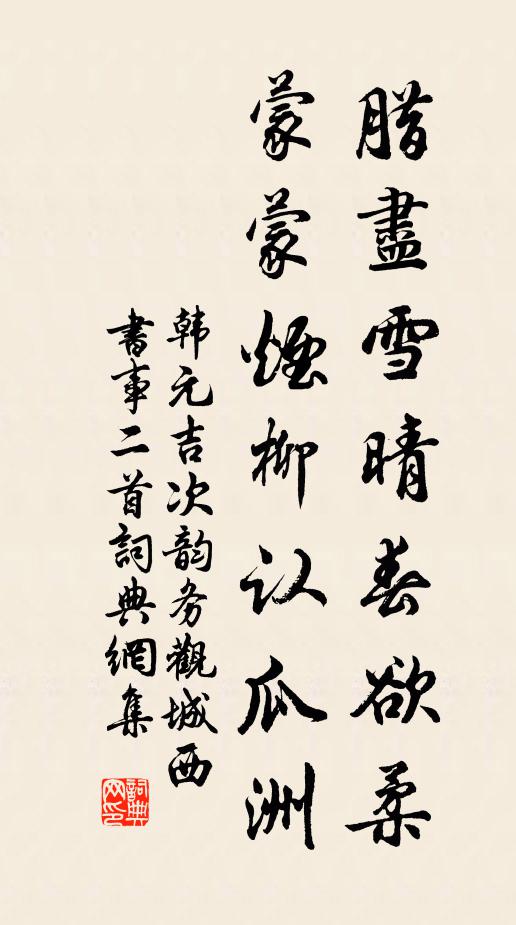 腊盡雪晴春欲柔
蒙蒙煙柳认瓜洲
韩元吉次韵务觀城西
書事二首詞典網集
詞典网印